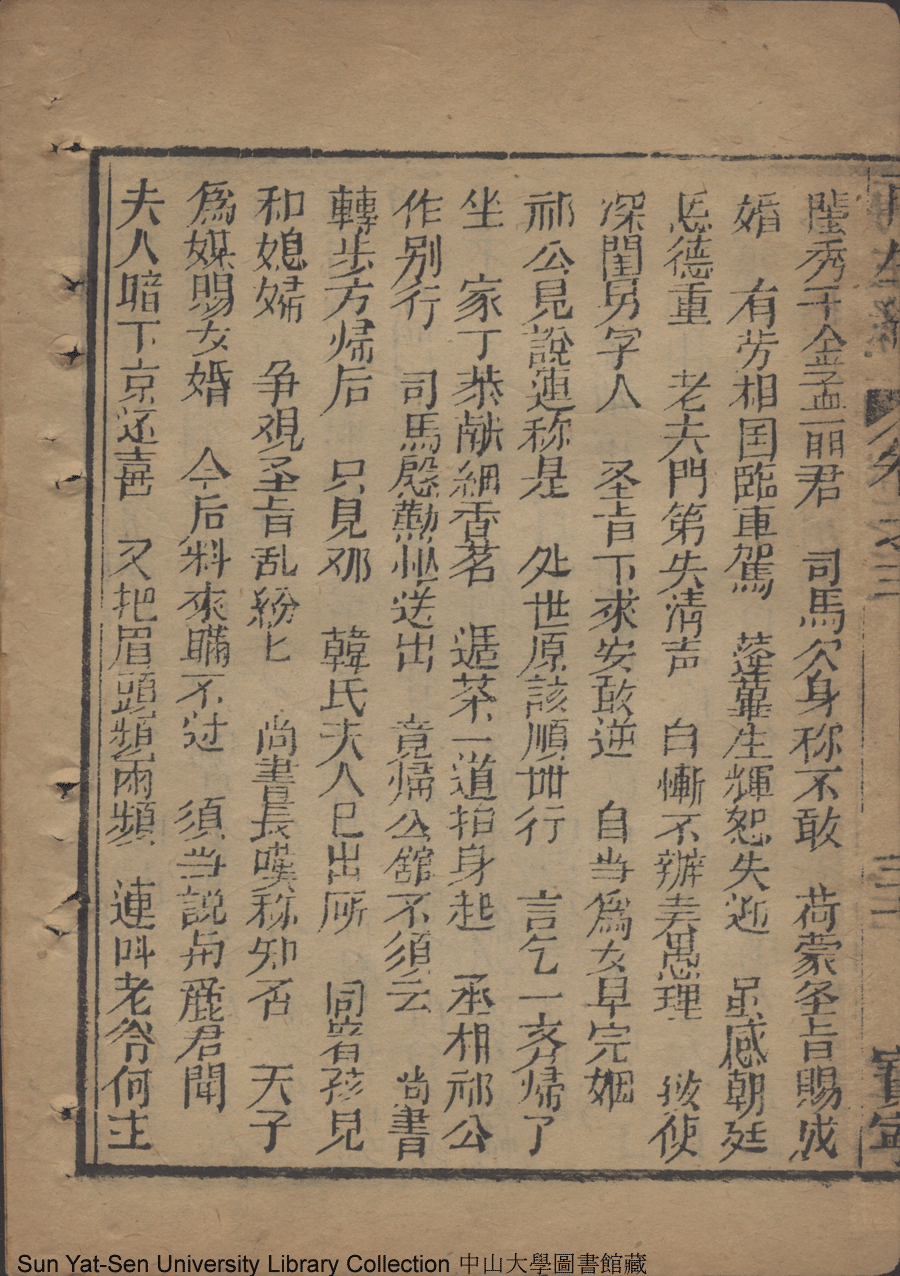 陞秀千金孟丽君　司馬欠身称不敢　荷蒙圣旨賜成
婚　有劳相国臨車駕　蓬蓽生輝恕失迎　虽感朝廷
恩德重　老夫門第失清声　自慚不辦差愚理　致使
深閨另字人　圣旨下求安敢逆　自当爲女早完姻
祁公見說連称是　处世原該順世行　言乞一奔帰了
坐　家丁恭献細香茗　遞茶一道抬身起　丞相祁公
作别行　司馬慇懃忙送出　竟帰公舘不須云　尚書
轉步方帰后　只見邓　韓氏夫人已出厛　同着孩児
和媳婦　争观圣旨乱紛匕　尚書長嘆称知否　天子
爲媒賜女婚　今后料來瞞不过　須当説与麗君聞
夫人暗下京还喜　又把眉頭頻兩頻　連叫老爷何主
再生緣　卷之三　三十　寳寧
Sun Yat-Sen University Library Collection 中山大學圖書館藏